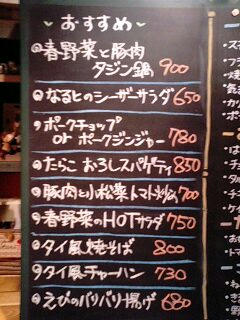 おすすめ
春野菜と豚肉
タジン鍋 900
なるとのシーザーサラダ 650
ポークチョップ
or ポークジンジャー 780
たらこ おろしスパゲティ 850
豚肉と小松菜トマト炒め 700
春野菜のHOTサラダ 750
タイ風焼そば 800
タイ風チャーハン 730
えびのパリパリ揚げ 680